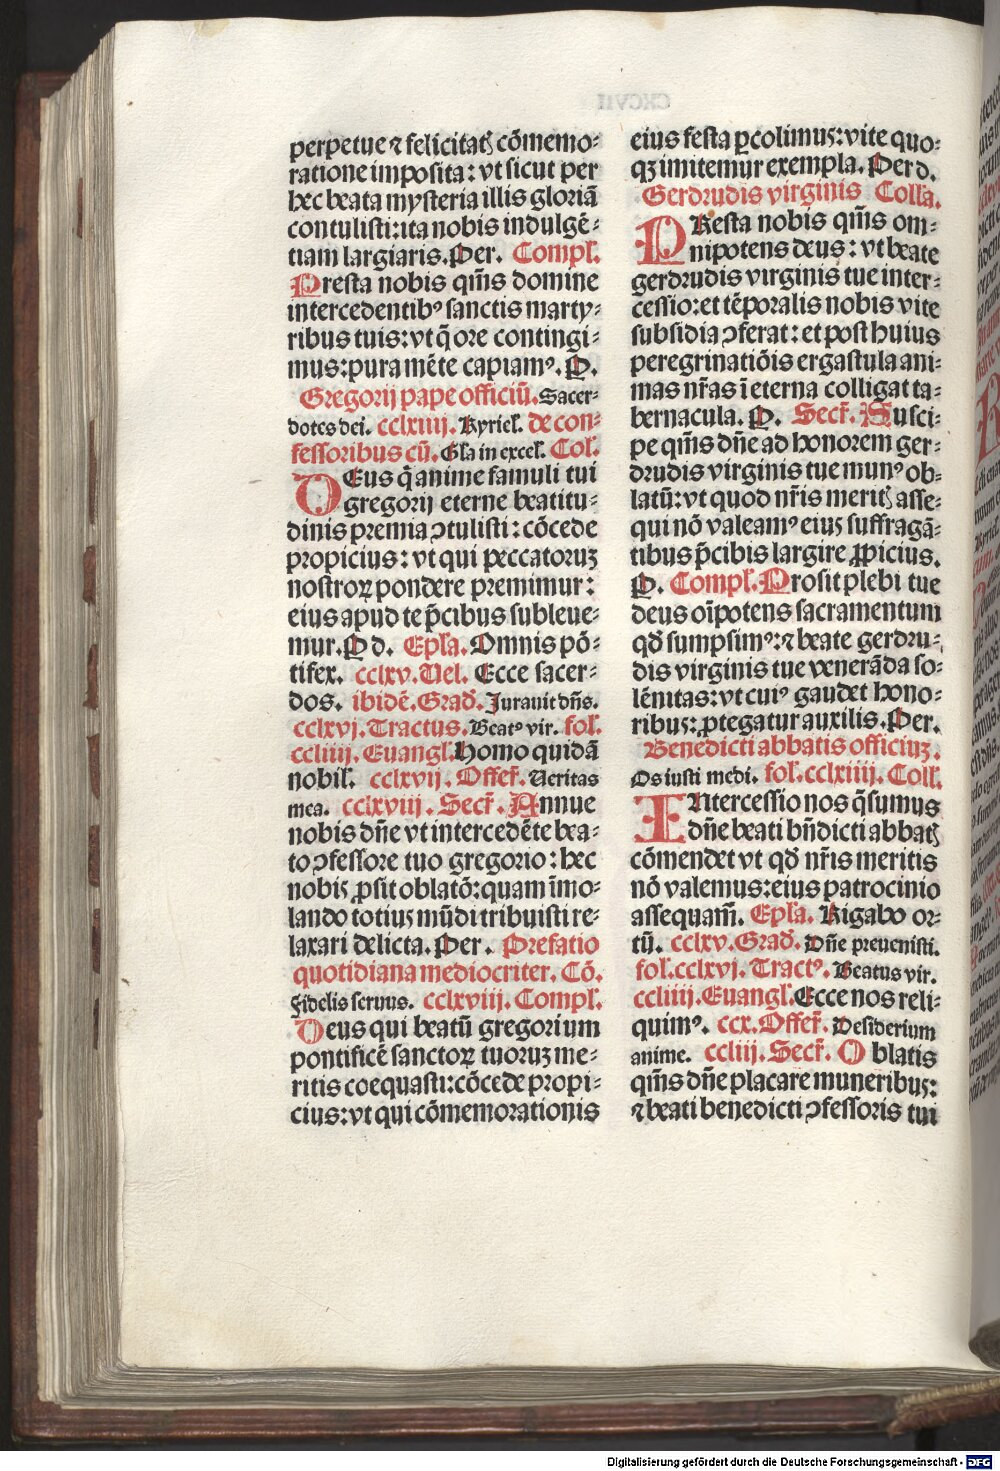 perpetue ⁊ felicitatꝭ cōmemo⸗
ratione imposita: vt sicut per
hec beata mysteria illis gloriā
contulisti: ita nobis indulgē⸗
tiam largiaris. Per. Compl̕.
Presta nobis qm̄s domine
intercedentibꝰ sanctis marty⸗
ribus tuis: vt q̄ ore contingi⸗
mus: pura mēte capiamꝰ. P.
Gregorij pape officiū. Sacer⸗
dotes dei. cclxiiij. Kyriel̕. de con⸗
fessoribus cū. Gl̄a in excel̕. Col̕.
DEus q̄ anime famuli tui
gregorij eterne beatitu⸗
dinis premia ꝯtulisti: cōcede
propicius: vt qui peccatoruꝫ
nostroꝝ pondere premimur:
eius apud te p̄cibus subleue⸗
mur. P d. Epl̄a. Omnis pō⸗
tifex. cclxv. Uel. Ecce sacer⸗
dos. ibidē. Grad̕. Jurauit dn̄s.
cclxvj. Tractus. Beatꝰ vir. fol̕.
ccliiij. Euangl̕. Homo quidā
nobil̕. cclxvij. Offer̕. Ueritas
mea. cclxviij. Secr̕. Annue
nobis dn̄e vt intercedēte bea⸗
to ꝯfessore tuo gregorio: hec
nobis ꝓsit oblatō: quam īmo⸗
lando totius mūdi tribuisti re⸗
laxari delicta. Per. Prefatio
quotidiana mediocriter. Cō.
Fidelis seruus. cclxviij. Compl̕.
Deus qui beatū gregorium
pontificē sanctoꝝ tuoruꝫ me⸗
ritis coequasti: cōcede propi⸗
cius: vt qui cōmemorationis
eius festa ꝑcolimus: vite quo⸗
qꝫ imitemur exempla. Per d.
Gerdrudis virginis Coll̄a.
PResta nobis qm̄s om⸗
nipotens deus: vt beate
gerdrudis virginis tue inter⸗
cessio: et tēporalis nobis vite
subsidia ꝯferat: et post huius
peregrinatiōis ergastula ani⸗
mas nr̄as ī eterna colligat ta⸗
bernacula. P. Secr̕. Susci⸗
pe qm̄s dn̄e ad honorem ger⸗
drudis virginis tue munꝰ ob⸗
latū: vt quod nr̄is meritꝭ asse⸗
qui nō valeamꝰ eius suffragā⸗
tibus p̄cibus largire ꝓpicius.
P. Compl̕. Prosit plebi tue
deus oīpotens sacramentum
qd̄ sumpsimꝰ: ⁊ beate gerdru⸗
dis virginis tue venerāda so⸗
lēnitas: vt cuiꝰ gaudet hono⸗
ribus: ꝓtegatur auxilis. Per.
Benedicti abbatis officiuꝫ.
Os iusti medi. fol̕. cclxiiij. Coll̕.
INtercessio nos q̄sumus
dn̄e beati bn̄dicti abbatꝭ
cōmendet vt qd̄ nr̄is meritis
nō valemus: eius patrocinio
assequam̄. Epl̄a. Rigabo or⸗
tū. cclxv. Grad̕. Dn̄e preuenisti.
fol̕. cclxvj. Tractꝰ. Beatus vir.
ccliiij. Euangl̕. Ecce nos reli⸗
quimꝰ. ccx. Offer̕. Desiderium
anime. ccliij. Secr̕. Oblatis
qm̄s dn̄e placare muneribus:
⁊ beati benedicti ꝯfessoris tui
Digitalisierung gefördert durch die Deutsche Forschungsgemeinschaft - DFG